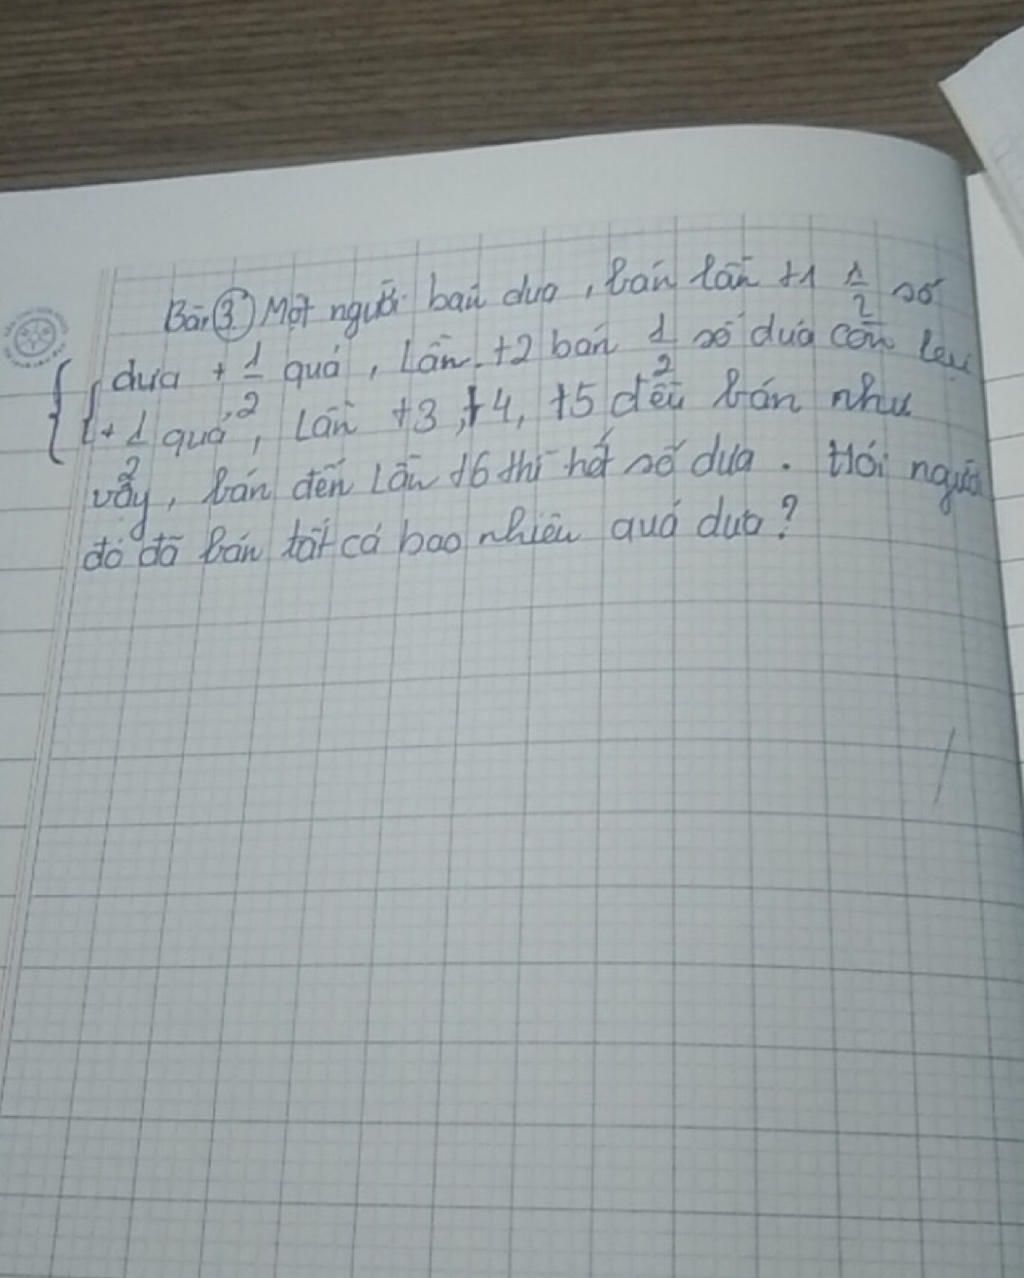 Bài 3 Một người bán dưa, bán lần t1 1/2 số
dưa + 1/2 quả, Lần t2 bán 1/2 số dưa còn lại
+ 1/2 quả, Lần t3, t4, t5 đều bán như
vậy, bán đến Lần t6 thì hết số dưa. Hỏi người
đó đã bán tất cả bao nhiêu quả dưa?